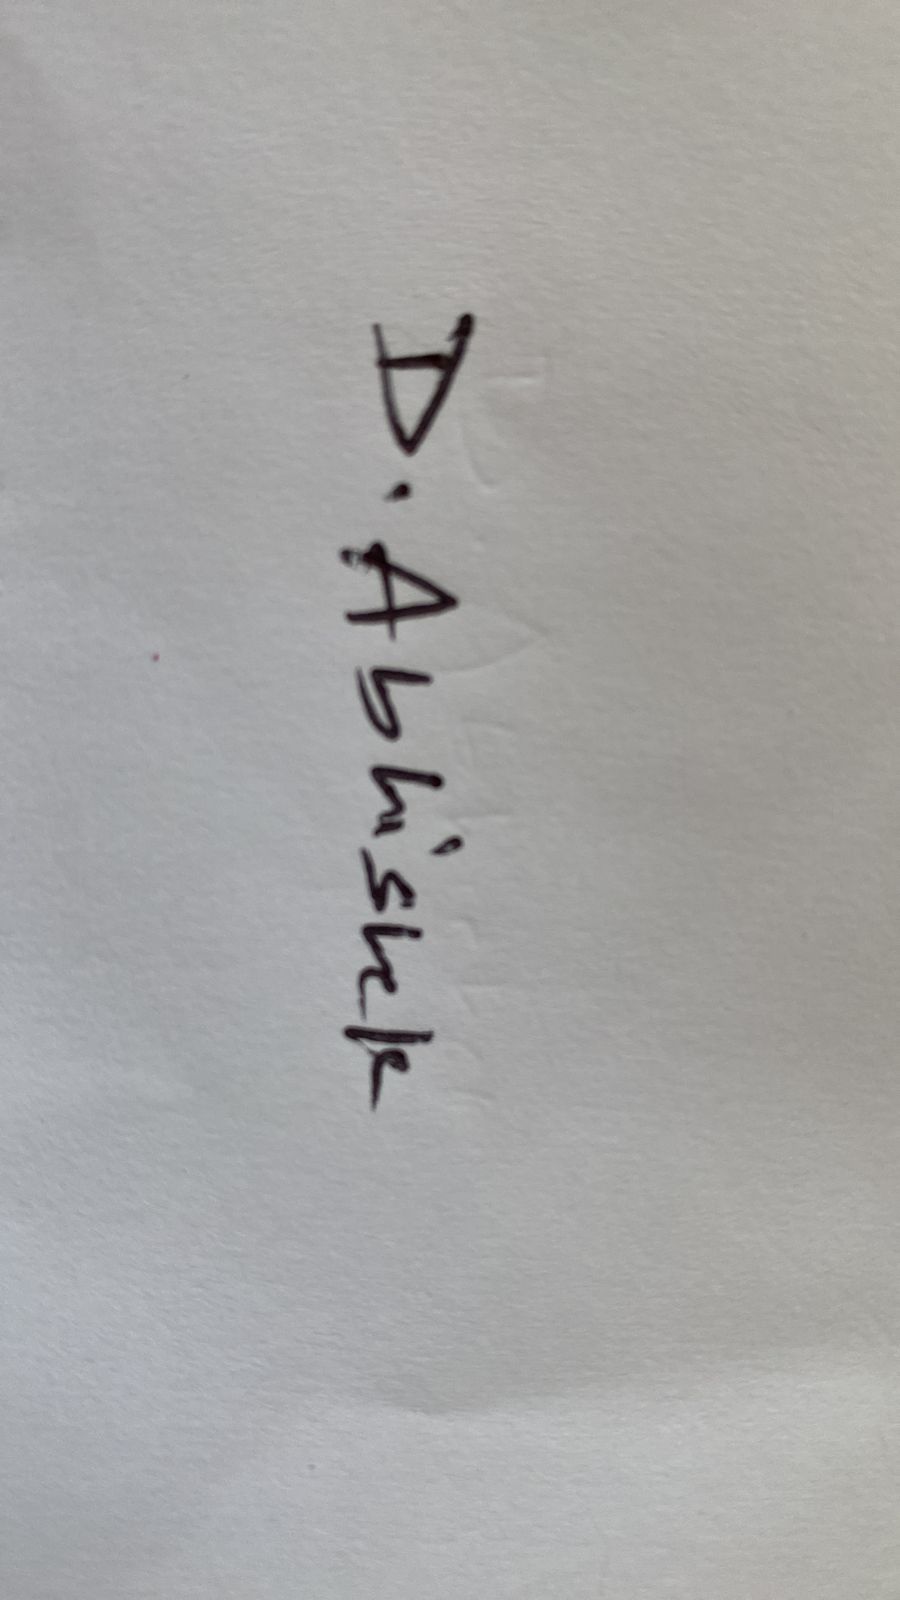 D. Abhishek